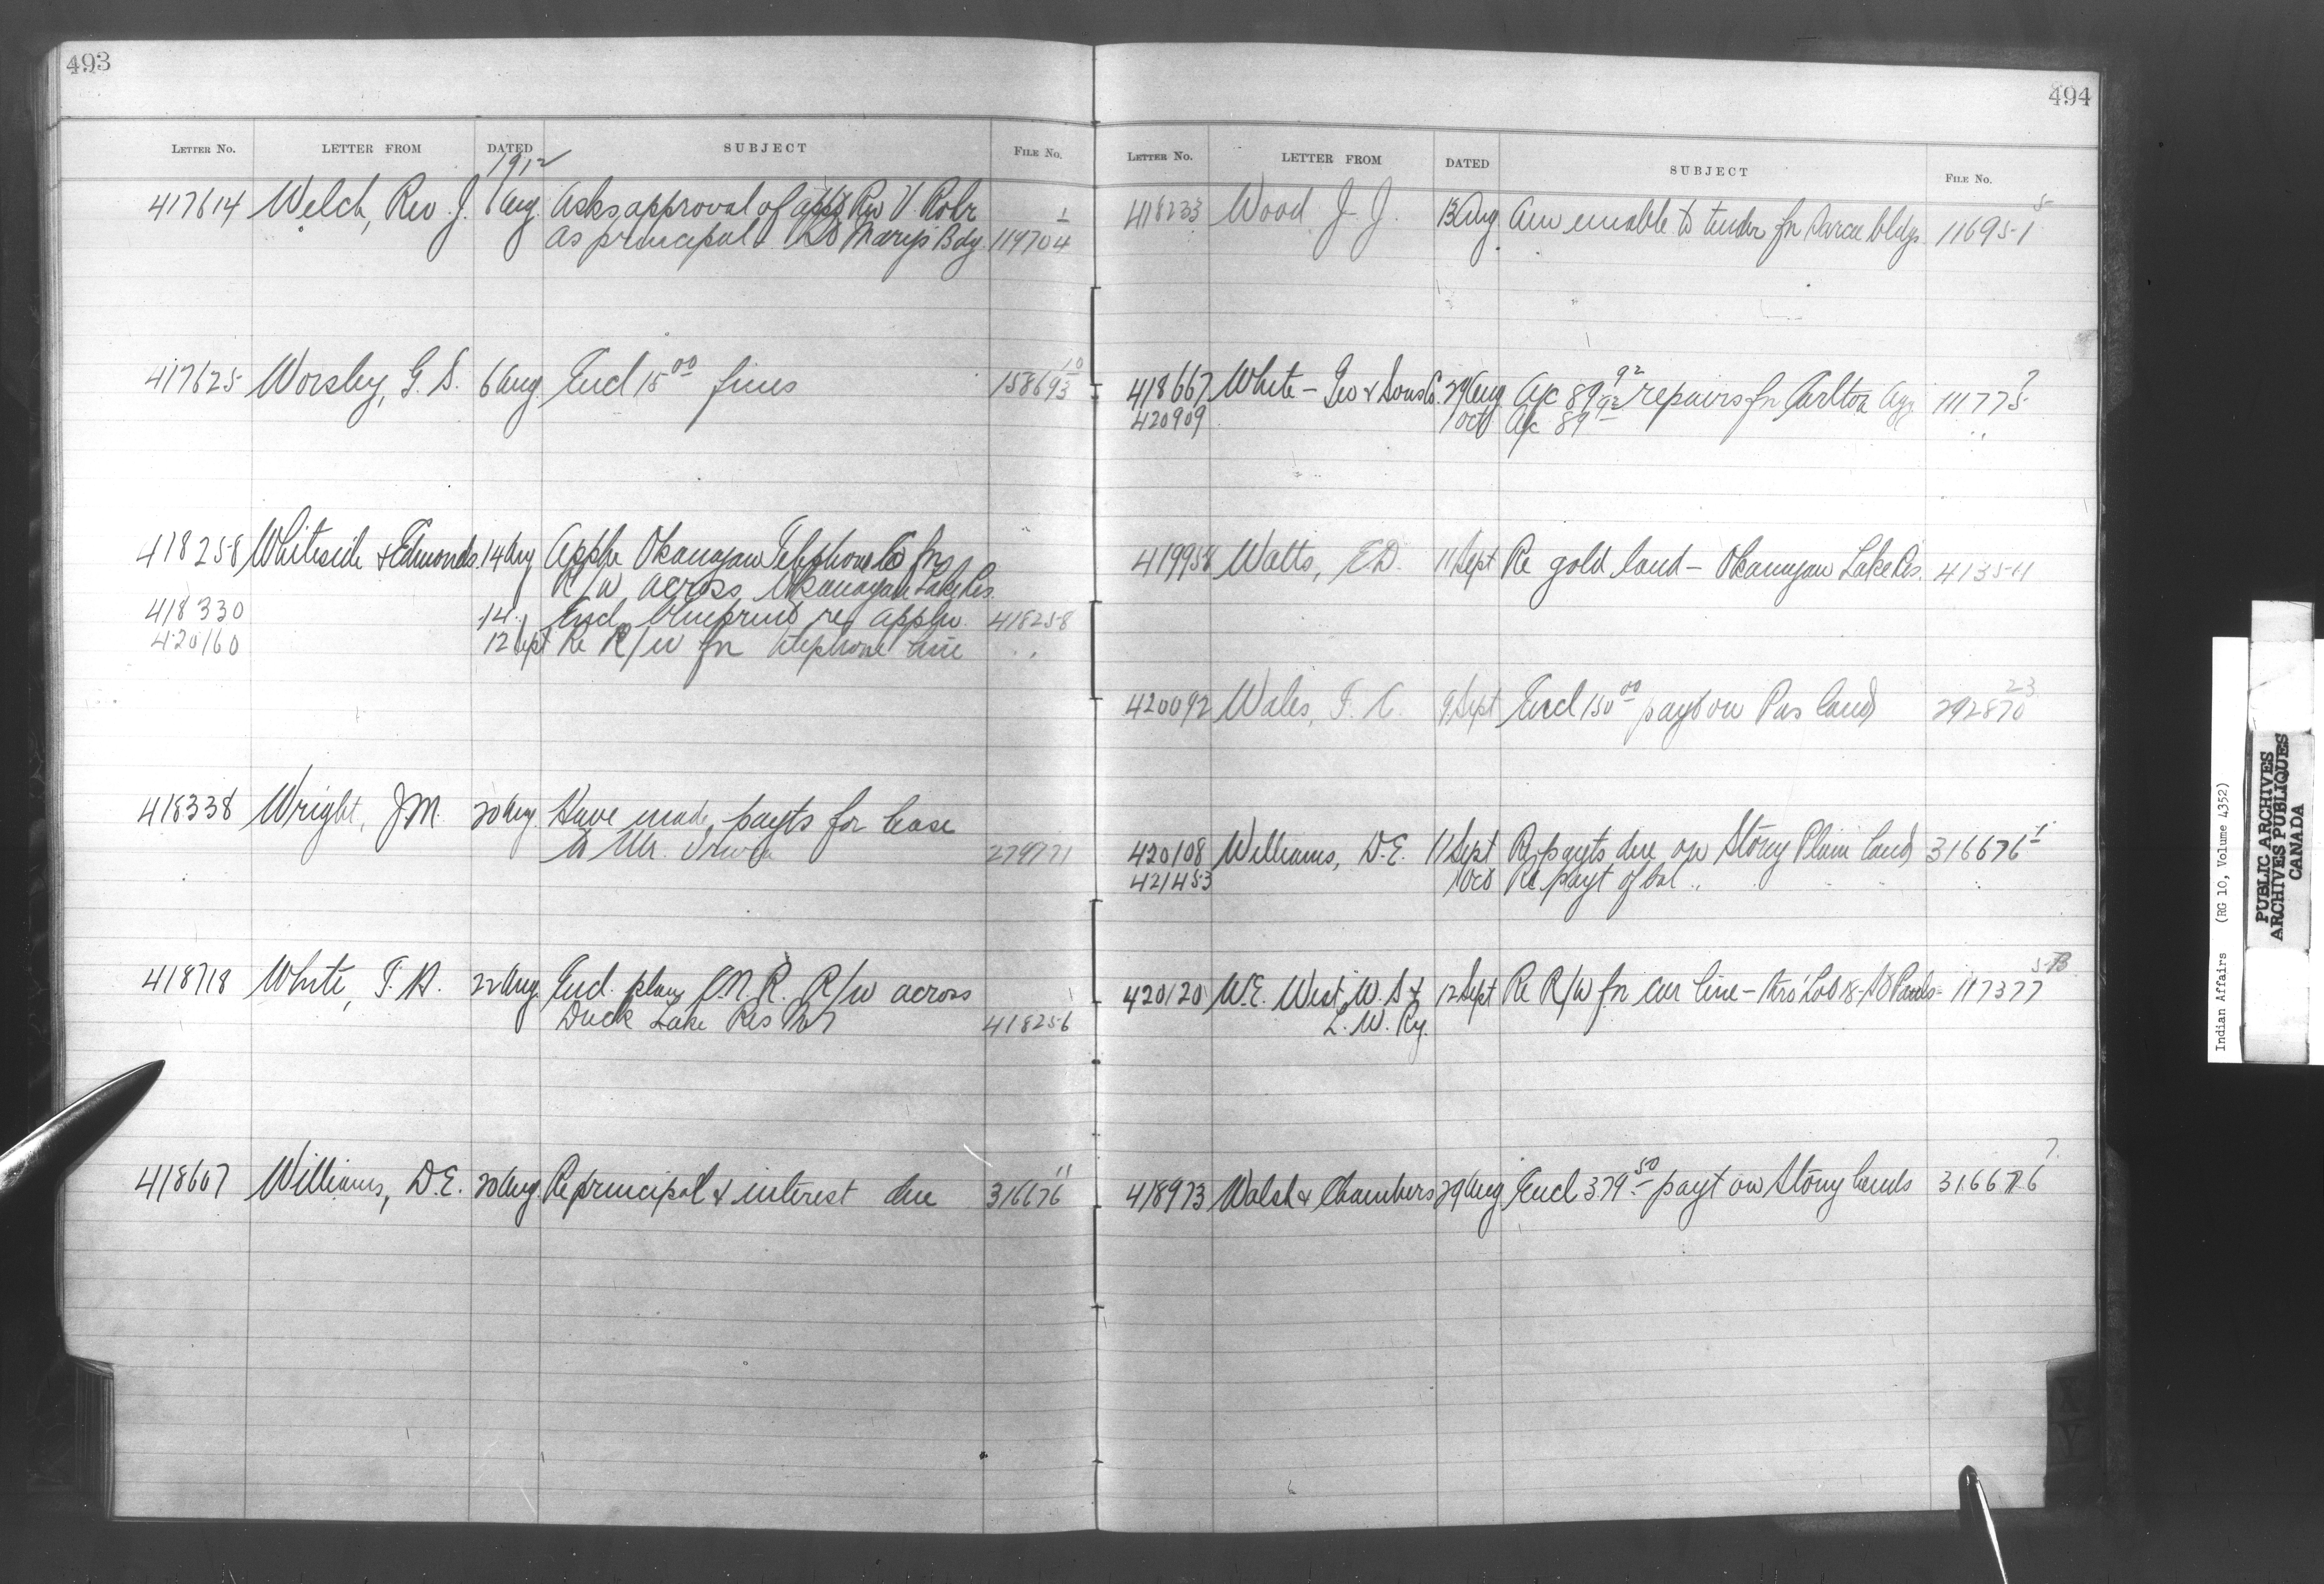 493
LETTER No. LETTER FROM DATED SUBJECT FILE No.
1912
417614 Welch, Rev. J. 6 Aug. Asks approval of appt Rev V Rohr 1
as principal St Mary's Bdg 119704
417625 Worsley, G. S. 6 Aug. Encl 15 00 fines 158693 10
418258 Whiteside & Edmonds. 14 Aug Appln Okanagan Telephone Co for
R/W across Okanagan Lake Res.
418330 14 " Encl blueprint re appln 418258
420160 12 Sept Re R/W for telephone line " "
418338 Wright, J.M. 20 Aug. Have made payts for lease
to Mr. Irwin 279771
418718 White, T. H. 22 Aug. Encl. plan C.N.R. R/W across
Duck Lake Res No 7 418256
418607 Williams, D.E. 20 Aug Re principal & interest due 316676 11
494
LETTER No. LETTER FROM DATED SUBJECT FILE No.
418233 Wood J. J. 13 Aug. Am unable to tender for Sarcee bldgs 116951 5
418667 White - Geo & Sons Co. 29 Aug. A/c 89 92 repairs for Carlton Agy 111775 7
420909 1 Oct A/c 89 92 " "
419958 Watts, E.D. 11 Sept Re gold land - Okanagan Lake Res. 41354
420092 Wales, F. C. 9 Sept Encl 150 00 payt on Pas land 292870 23
420108 Williams, D.E. 11 Sept Re payts due on Stony Plain land 316676 1
421453 1 Oct Re payt of bal " " " "
420120 W.E. West. W. S & 12 Sept Re R/W for car line - thro' Lot 18 - St Pauls - 117377 5-B
L. W. Ry.
418973 Walsh & Chambers 29 Aug Encl 379 50 payt on Stony lands 316676 7
Indian Affairs (RG 10, Volume 4352)
PUBLIC ARCHIVES
ARCHIVES PUBLIQUES
CANADA